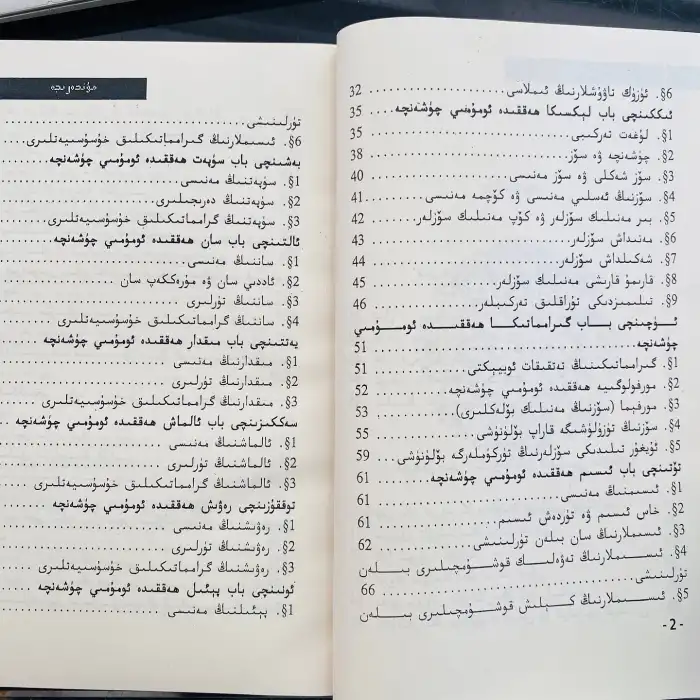 6§. ئۈزۈك تاۋۇشلارنىڭ ئىملاسى ................ 32
ئىككىنچى باب لېكسىكا ھەققىدە ئومۇمىي چۈشەنچە... 35
1§. لۇغەت تەركىبى ................ 35
2§. چۈشەنچە ۋە سۆز ................ 38
3§. سۆز شەكلى ۋە سۆز مەنىسى ................ 40
4§. سۆزنىڭ ئەسلىي مەنىسى ۋە كۆچمە مەنىسى ........ 41
5§. بىر مەنىلىك سۆزلەر ۋە كۆپ مەنىلىك سۆزلەر .... 42
6§. مەنىداش سۆزلەر ................ 43
7§. شەكىلداش سۆزلەر ................ 44
8§. قارىمۇ قارشى مەنىلىك سۆزلەر ................ 45
9§. تىلىمىزدىكى تۇراقلىق تەركىبلەر ................ 46
ئۈچىنچى بـــاب گىرامماتىكـــا ھەققىـــدە ئومـــۇمىي
چۈشەنچە ................ 51
1§. گىرامماتىكىنىڭ تەتقىقات ئوبيېكتى ........ 51
2§. مورفولوگىيە ھەققىدە ئومۇمىي چۈشەنچە ........ 52
3§. مورفېما (سۆزنىڭ مەنىلىك بۆلەكلىرى) ........ 53
4§. سۆزنىڭ تۈزۈلۈشىگە قاراپ بۆلۈنۈشى ........ 55
5§. ئۇيغۇر تىلىدىكى سۆزلەرنىڭ تۈركۈملەرگە بۆلۈنۈشى... 59
تۆتىنچى باب ئىسىم ھەققىدە ئومۇمىي چۈشەنچە ........ 61
1§. ئىسىمنىڭ مەنىسى ................ 61
2§. خاس ئىسىم ۋە تۈردەش ئىسىم ................ 61
3§. ئىسىملارنىڭ سان بىلەن تۈرلىنىشى ........ 62
4§. ئىســـىملارنىڭ تەۋەلىـــك قوشـــۇمچىلىرى بىـــلەن
تۈرلىنىشى ................ 66
5§. ئىســـىملارنىڭ كـــېلىش قوشـــۇمچىلىرى بىـــلەن
- 2 -
مۇندەرىجە
تۈرلىنىشى ................
6§. ئىسىملارنىڭ گىرامماتىكىلىق خۇسۇسىيەتلىرى ....
بەشىنچى باب سۈپەت ھەققىدە ئومۇمىي چۈشەنچە ........
1§. سۈپەتنىڭ مەنىسى ................
2§. سۈپەتنىڭ دەرىجىلىرى ................
3§. سۈپەتنىڭ گىرامماتىكىلىق خۇسۇسىيەتلىرى ........
ئالتىنچى باب سان ھەققىدە ئومۇمىي چۈشەنچە ........
1§. ساننىڭ مەنىسى ................
2§. ئاددىي سان ۋە مۇرەككەپ سان ................
3§. ساننىڭ تۈرلىرى ................
4§. ساننىڭ گىرامماتىكىلىق خۇسۇسىيەتلىرى ........
يەتتىنچى باب مىقدار ھەققىدە ئومۇمىي چۈشەنچە ........
1§. مىقدارنىڭ مەنىسى ................
2§. مىقدارنىڭ تۈرلىرى ................
3§. مىقدارنىڭ گىرامماتىكىلىق خۇسۇسىيەتلىرى ........
سەككىزىنچى باب ئالماش ھەققىدە ئومۇمىي چۈشەنچە ....
1§. ئالماشنىڭ مەنىسى ................
2§. ئالماشنىڭ تۈرلىرى ................
3§. ئالماشنىڭ گىرامماتىكىلىق خۇسۇسىيەتلىرى ........
توققۇزىنچى باب رەۋىش ھەققىدە ئومۇمىي چۈشەنچە ....
1§. رەۋىشنىڭ مەنىسى ................
2§. رەۋىشنىڭ تۈرلىرى ................
3§. رەۋىشنىڭ گىرامماتىكىلىق خۇسۇسىيەتلىرى ........
ئونىنچى باب پېئىل ھەققىدە ئومۇمىي چۈشەنچە ........
1§. پېئىلنىڭ مەنىسى ................